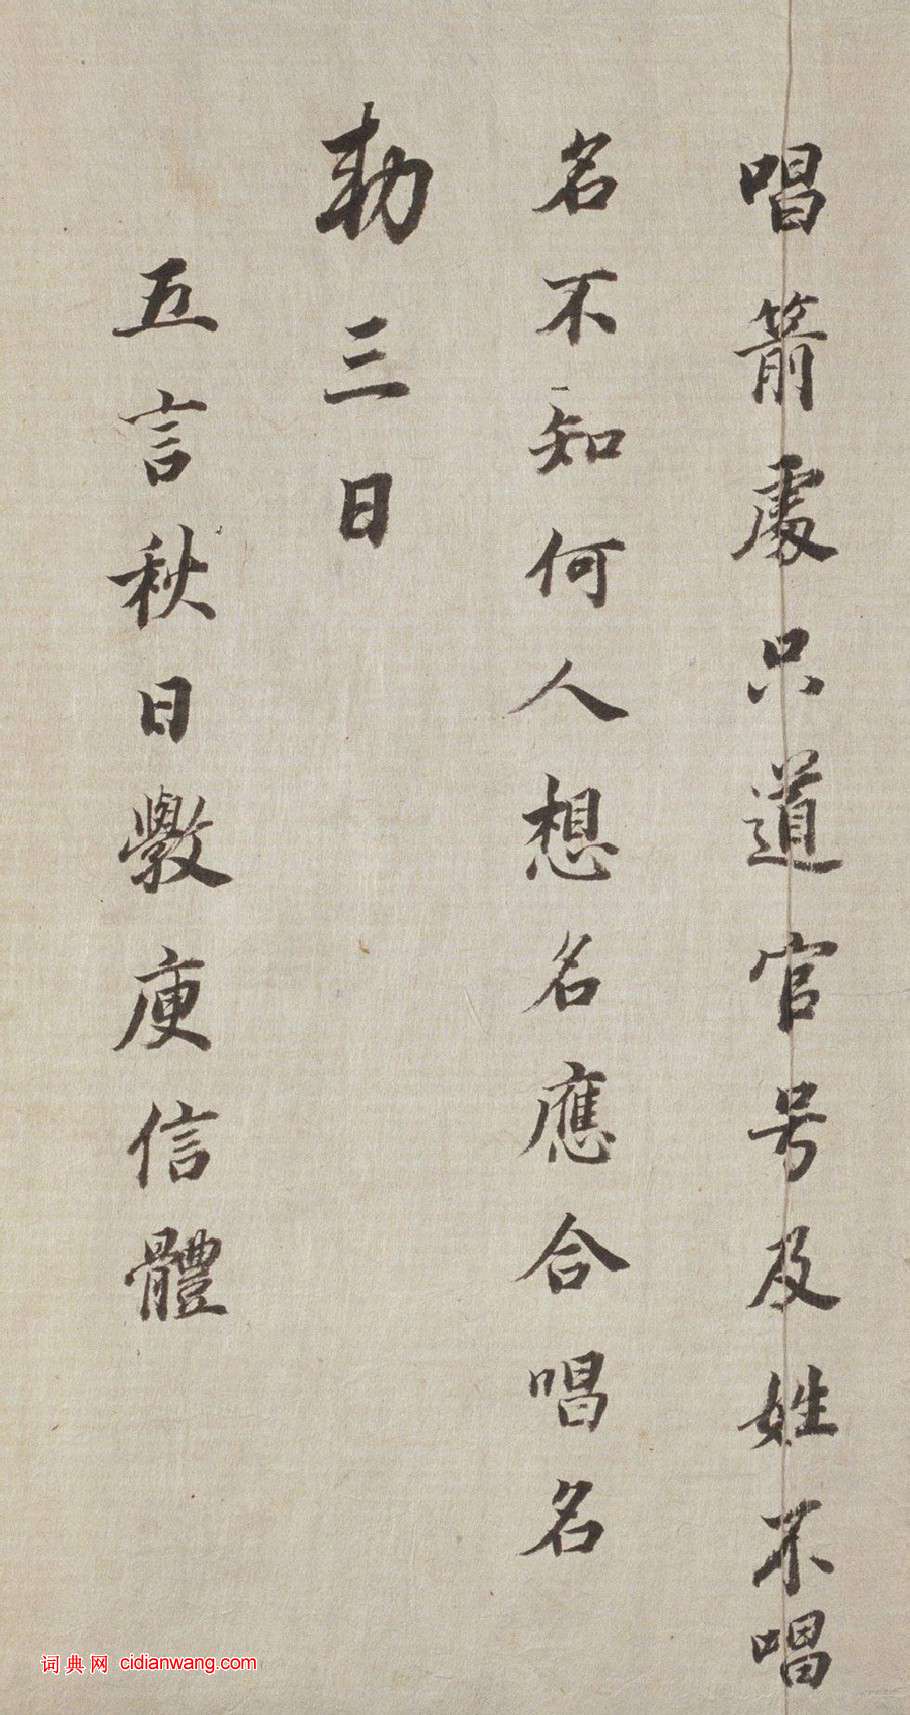 唱箭處只道官号及姓不唱
名不知何人想名應合唱名
勅三日
五言秋日斆庾信體
词典网 cidianwang.com